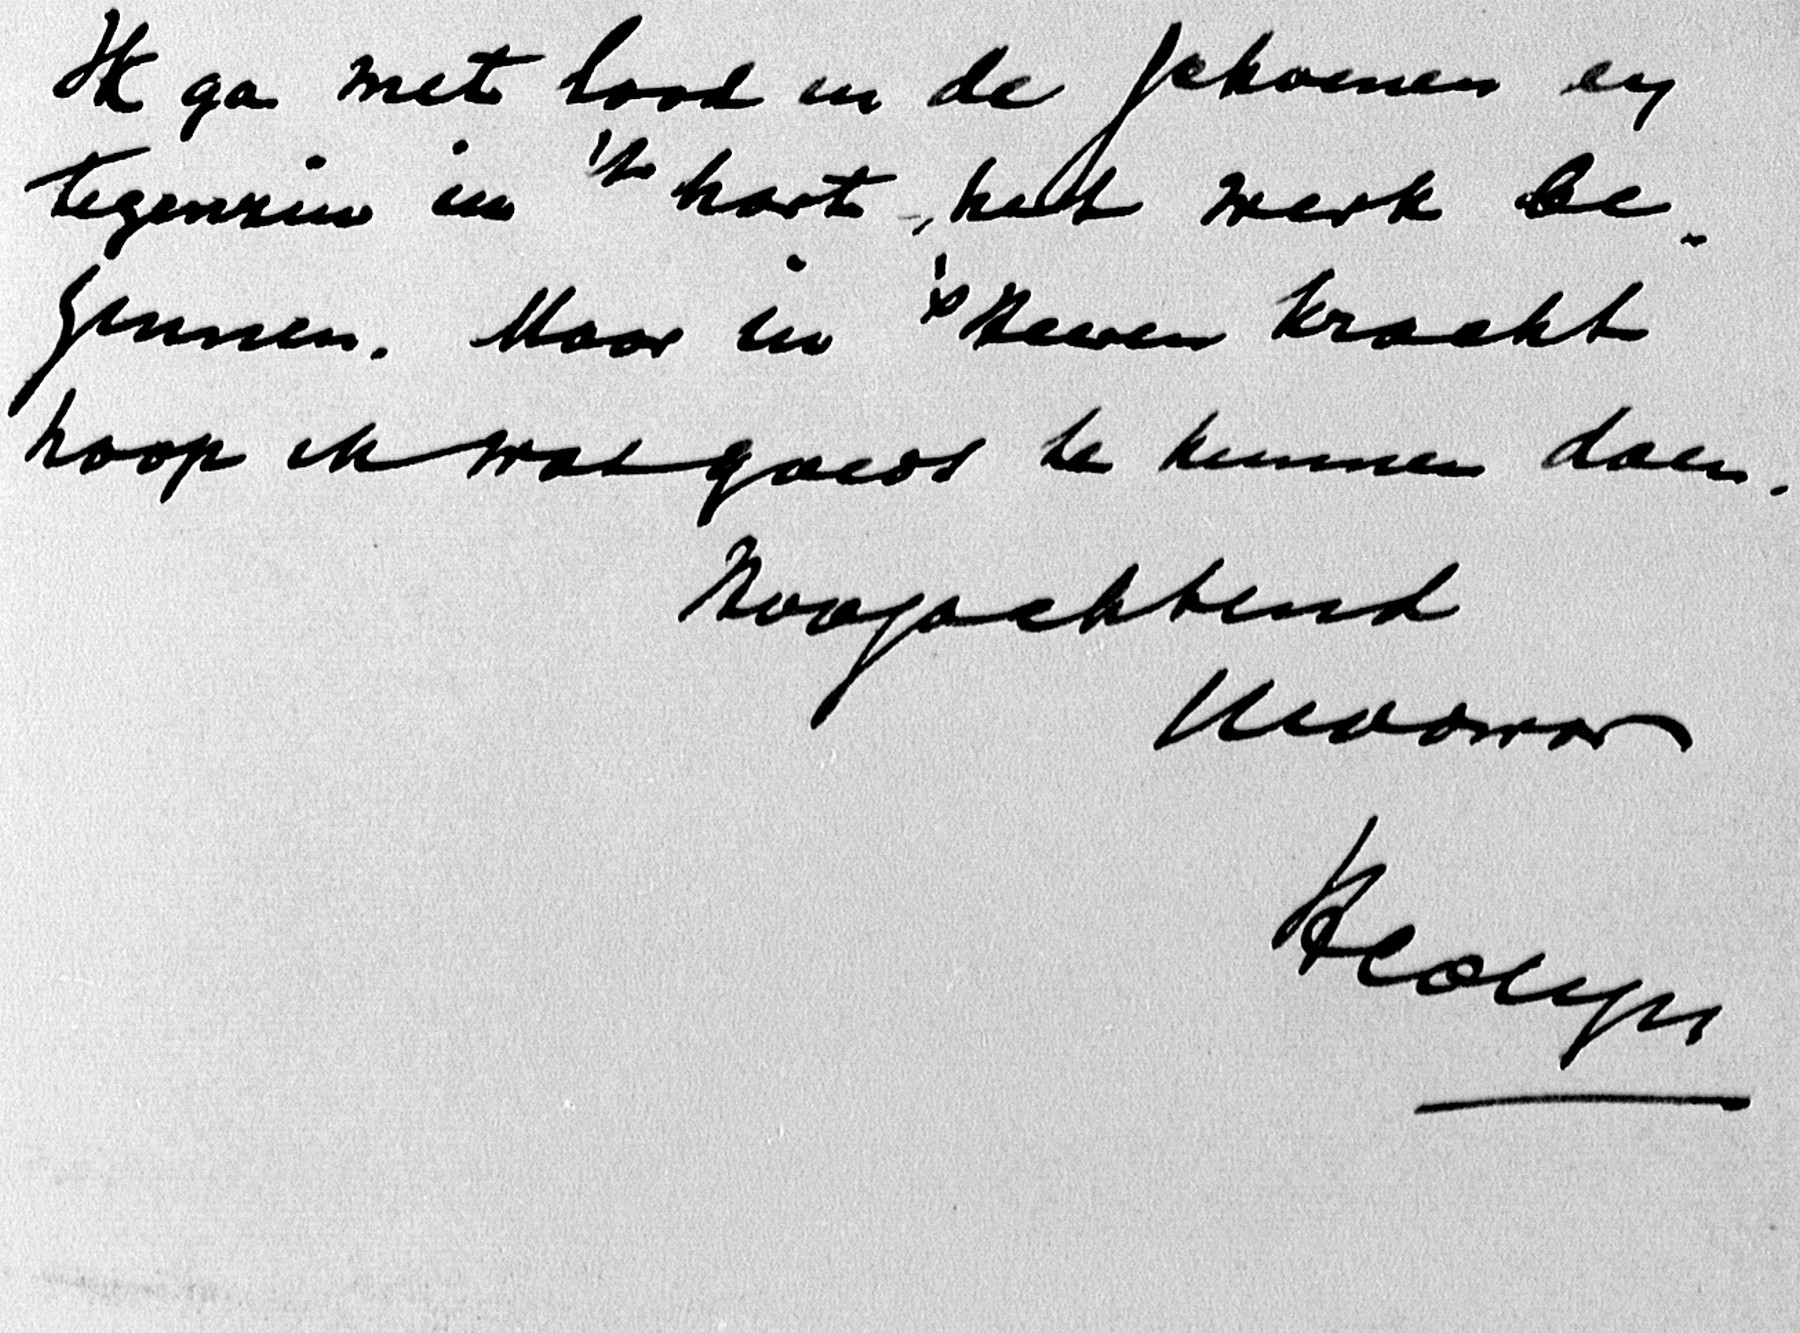 Ik ga met lood in de schoenen en
tegenzin in 't hart, het werk be-
ginnen. Maar in 's Heeren kracht
hoop ik wat goeds te kunnen doen.
Hoogachtend
Uwdwdr
HColijn